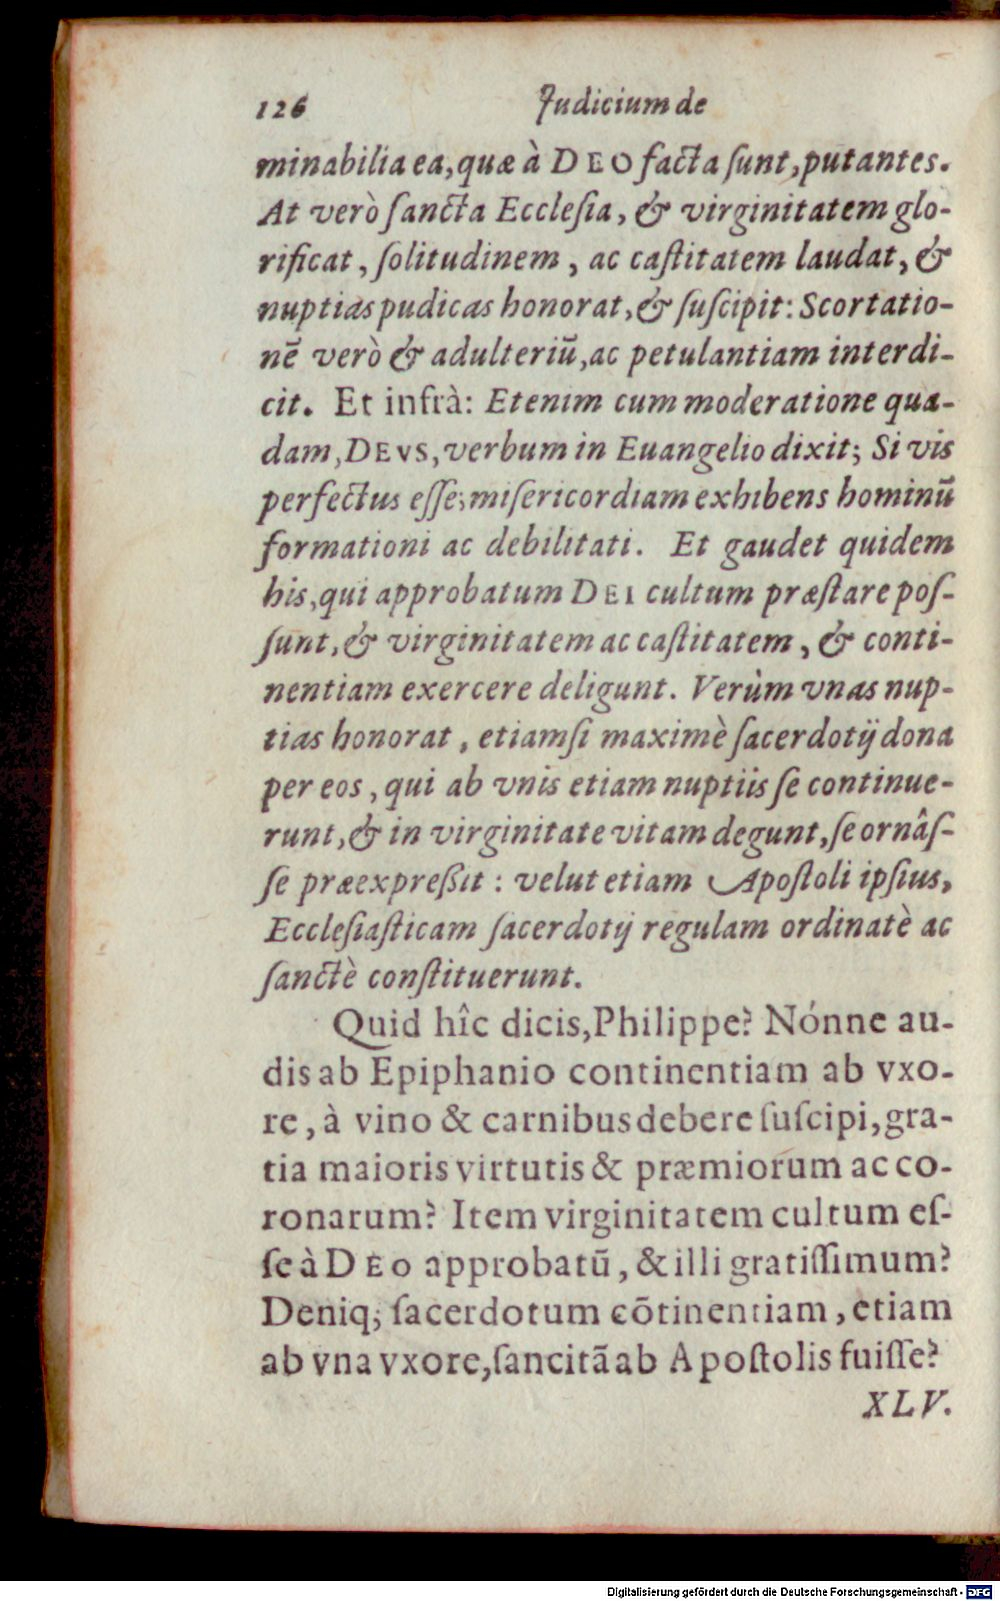 126 Judicium de
minabilia ea, quæ à DEO facta ſunt, putantes.
At verò ſancta Eccleſia, & virginitatem glo-
rificat, ſolitudinem, ac caſtitatem laudat, &
nuptias pudicas honorat, & ſuſcipit: Scortatio-
nē verò & adulteriū, ac petulantiam interdi-
cit. Et infrà: Etenim cum moderatione qua-
dam, DEVS, verbum in Euangelio dixit; Si vis
perfectus eſſe; miſericordiam exhibens hominū
formationi ac debilitati. Et gaudet quidem
his, qui approbatum DEI cultum præſtare poſ-
ſunt, & virginitatem ac caſtitatem, & conti-
nentiam exercere deligunt. Verùm vnas nup-
tias honorat, etiamſi maximè ſacerdotij dona
per eos, qui ab vnis etiam nuptiis ſe continue-
runt, & in virginitate vitam degunt, ſe ornâſ-
ſe præexpreßit: velut etiam Apoſtoli ipſius,
Eccleſiaſticam ſacerdotij regulam ordinatè ac
ſanctè conſtituerunt.
Quid hîc dicis, Philippe? Nónne au-
dis ab Epiphanio continentiam ab vxo-
re, à vino & carnibus debere ſuſcipi, gra-
tia maioris virtutis & præmiorum ac co-
ronarum? Item virginitatem cultum eſ-
ſe à DEO approbatū, & illi gratiſſimum?
Deniq; ſacerdotum cōtinentiam, etiam
ab vna vxore, ſancitã ab Apoſtolis fuiſſe?
XLV.
Digitalisierung gefördert durch die Deutsche Forschungsgemeinschaft - DFG